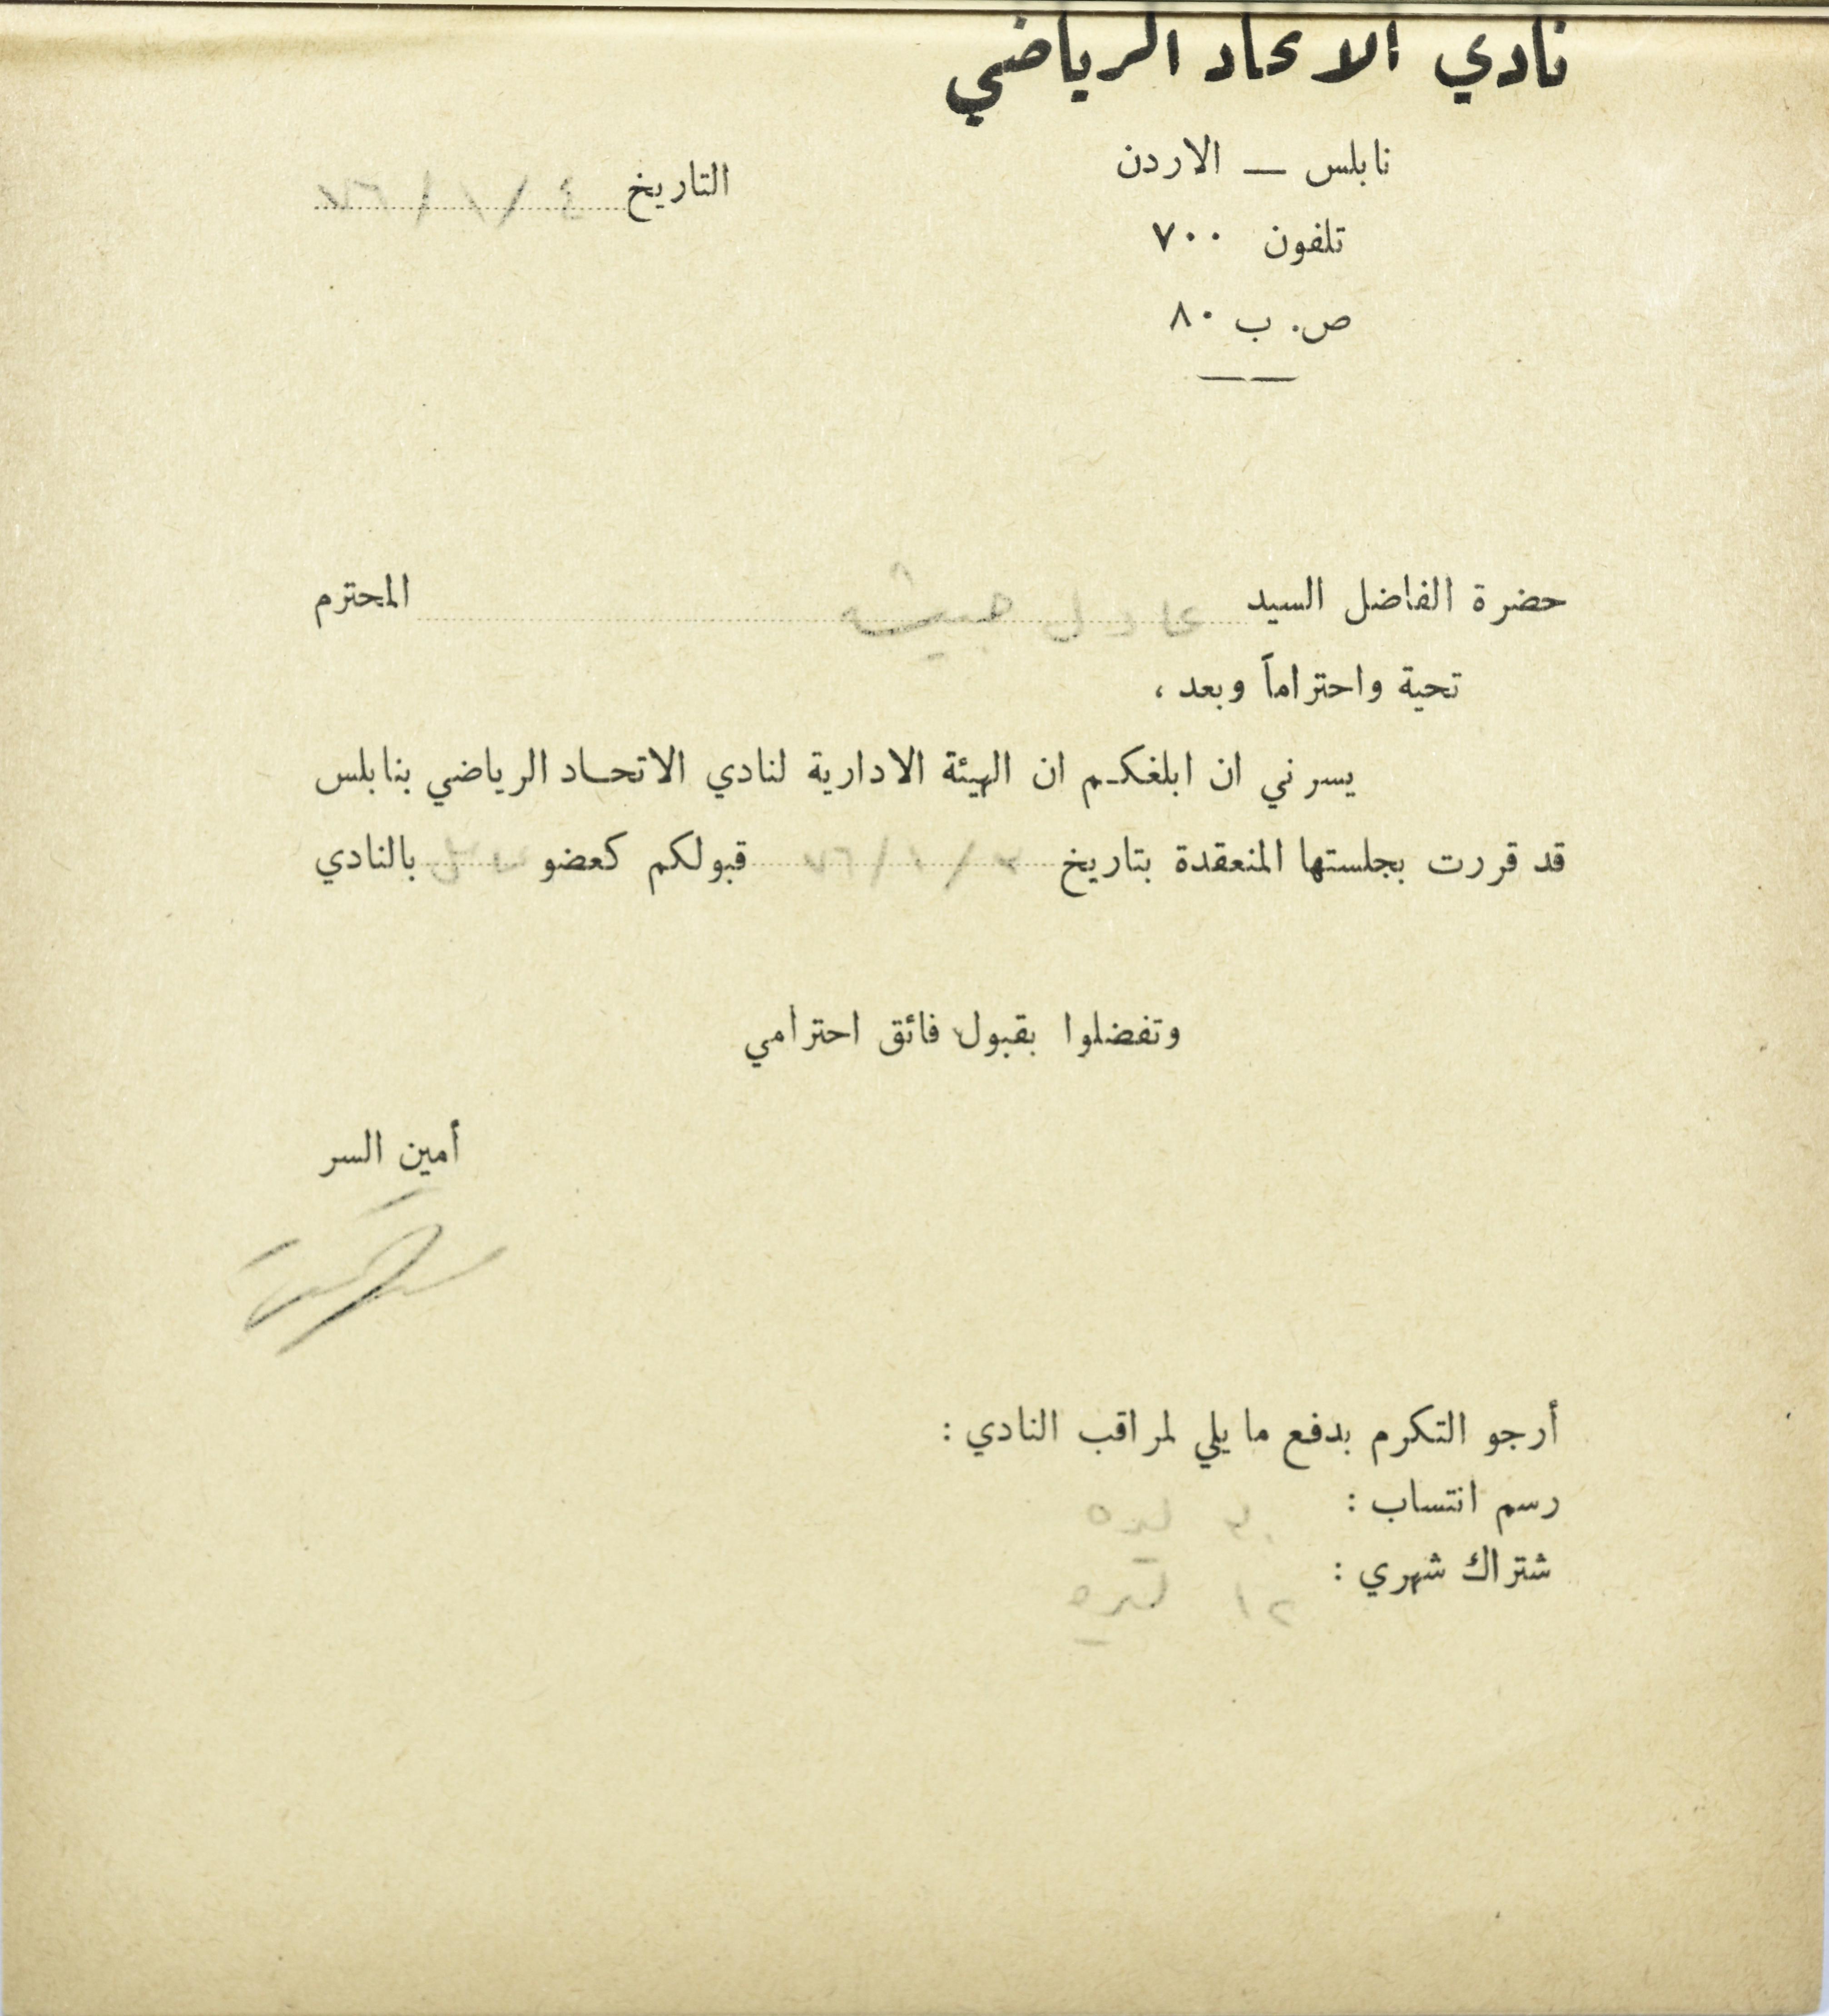 نادي الاتحاد الرياضي
نابلس — الاردن
تلفون ٧٠٠
ص. ب ٨٠
التاريخ ٤ / ١ / ٦٧
حضرة الفاضل السيد عادل المحترم
تحية واحتراماً وبعد ،
يسرني ان ابلغكم ان الهيئة الادارية لنادي الاتحاد الرياضي بنابلس
قد قررت بجلستها المنعقدة بتاريخ ٣ / ١ / ٦٧ قبولكم كعضو بالنادي
وتفضلوا بقبول فائق احترامي
أمين السر
أرجو التكرم بدفع ما يلي لمراقب النادي :
رسم انتساب :
شتراك شهري :